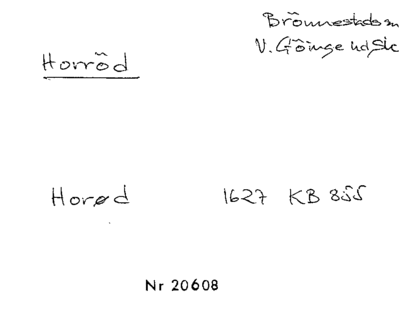 Brönnestads sn
V. Göinge hd Sk
Horröd
Horød 1627 KB 855
Nr 20608